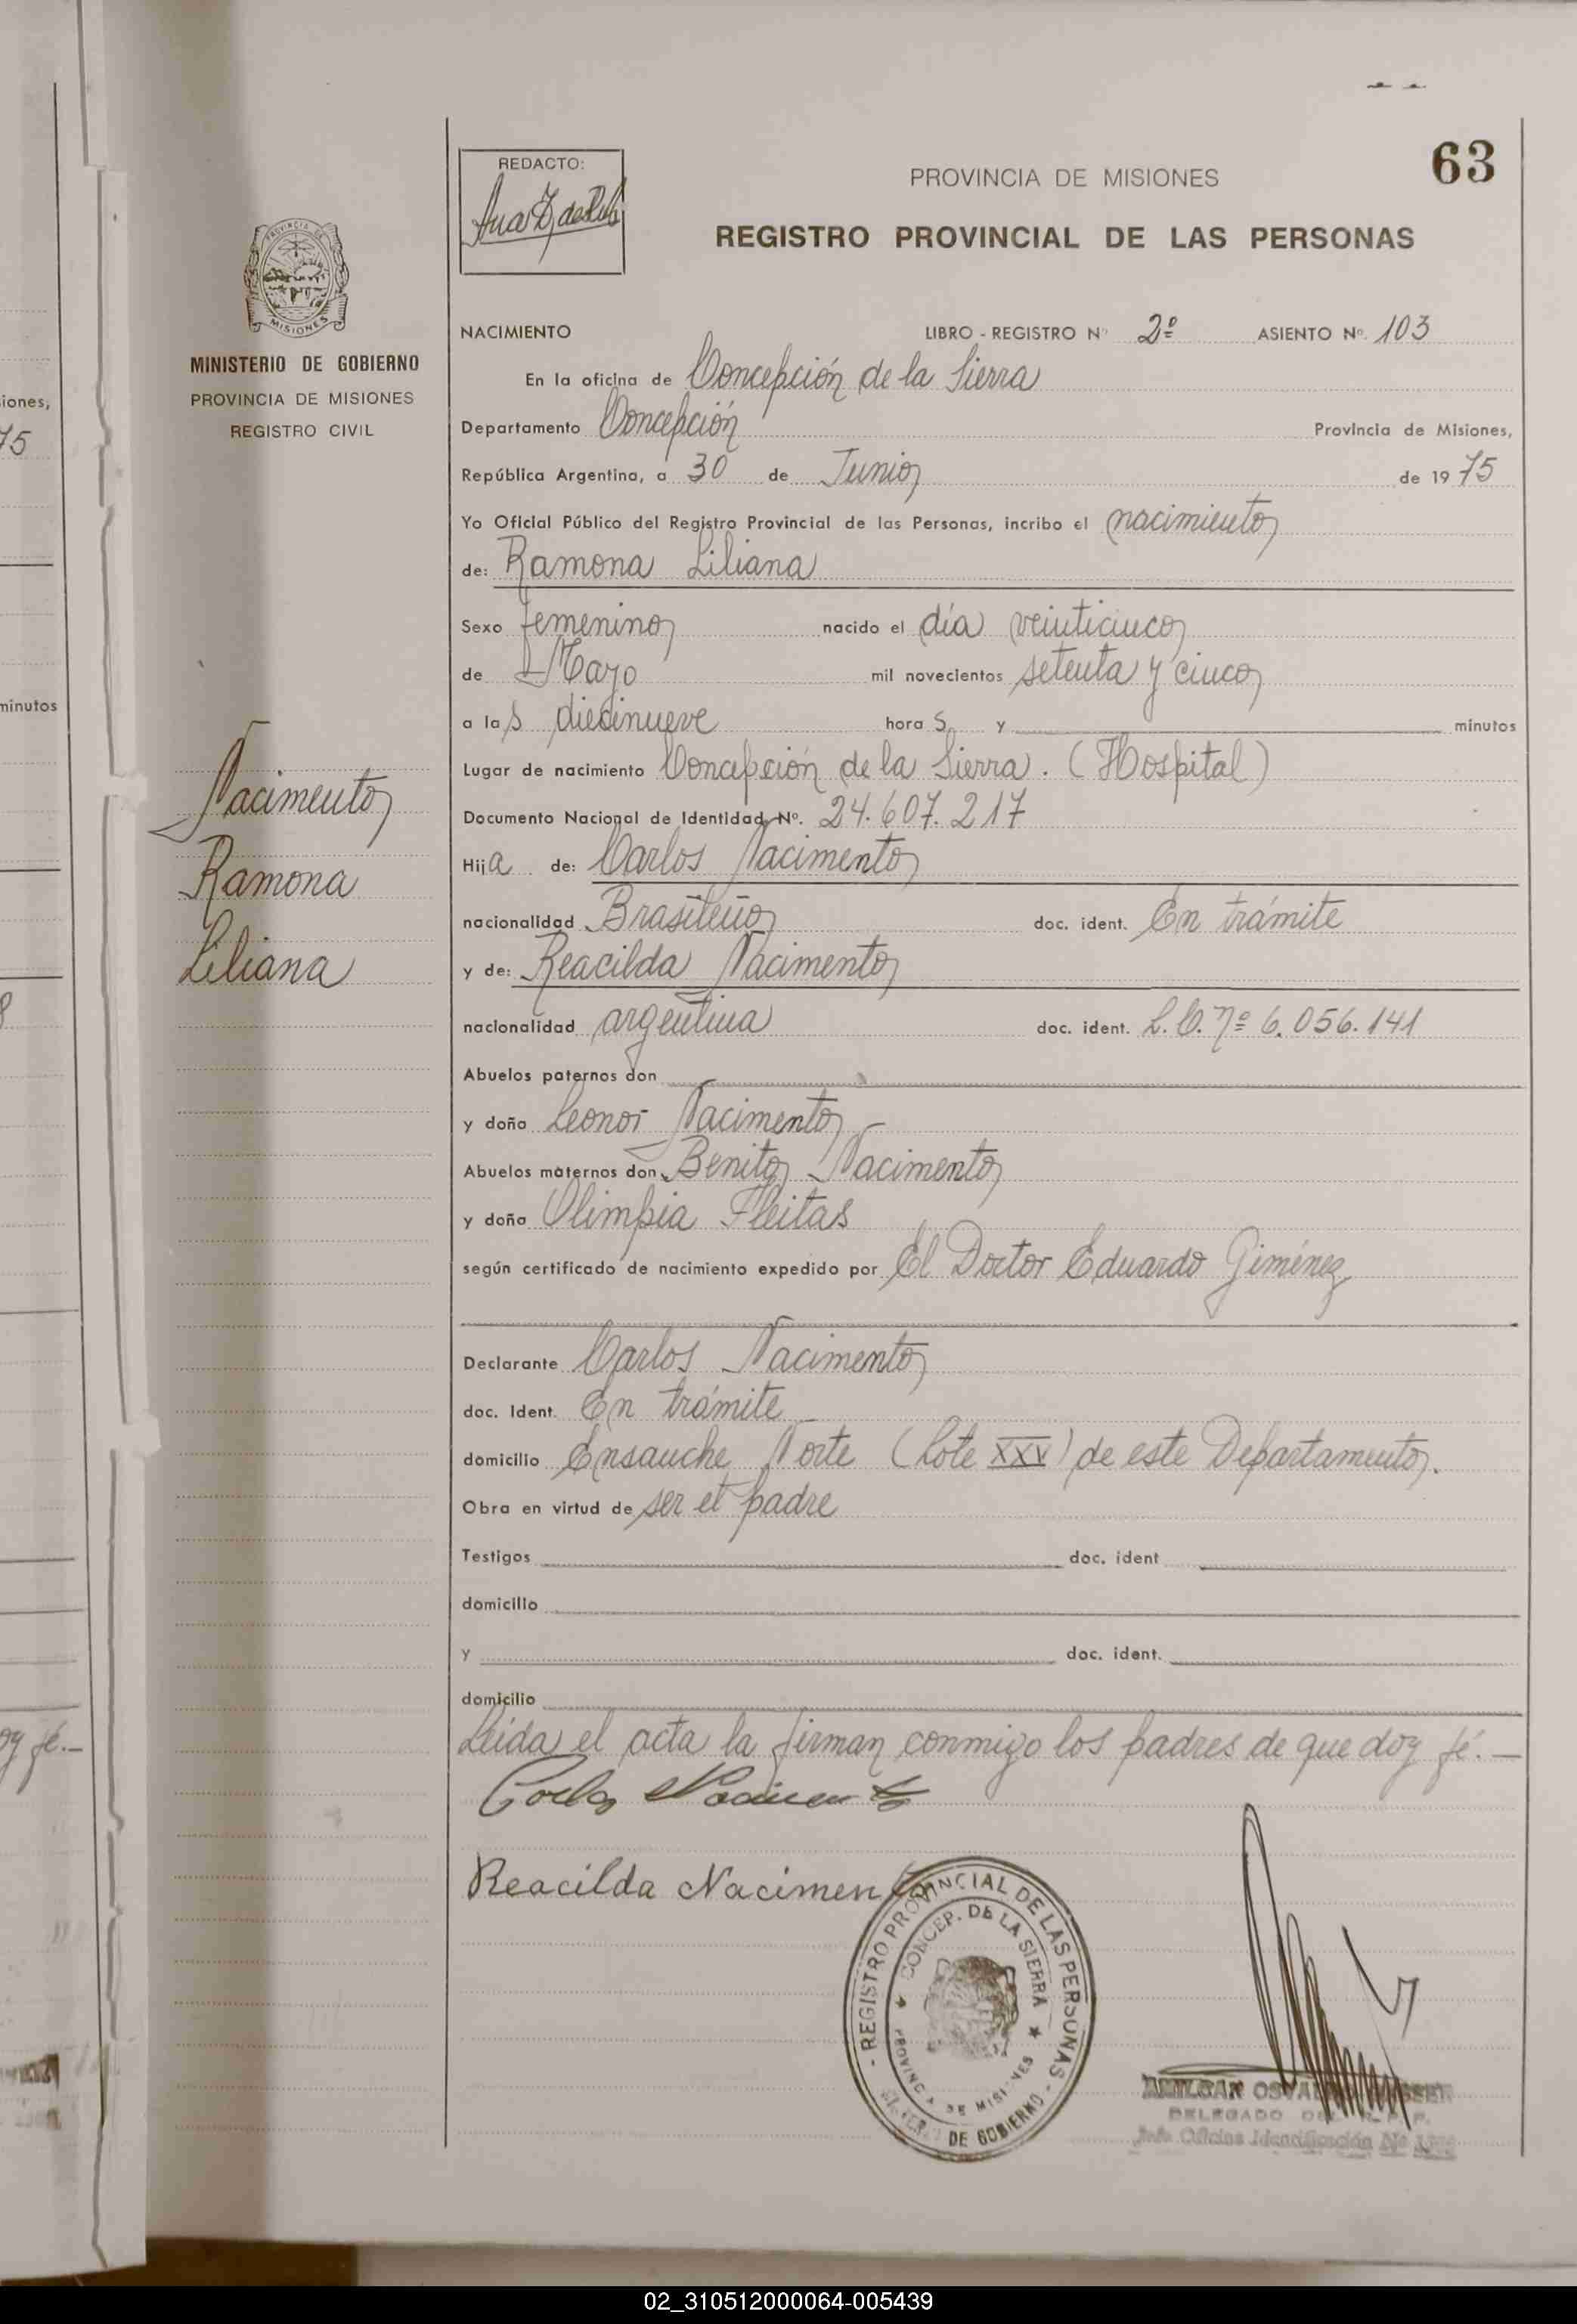 iones,
75
minutos
oy fé.—
PROVINCIA DE
MISIONES
MINISTERIO DE GOBIERNO
PROVINCIA DE MISIONES
REGISTRO CIVIL
Nacimento
Ramona
Liliana
REDACTO:
63
PROVINCIA DE MISIONES
REGISTRO PROVINCIAL DE LAS PERSONAS
NACIMIENTO LIBRO - REGISTRO Nº 2º ASIENTO Nº. 103
En la oficina de Concepción de la Sierra
Departamento Concepción Provincia de Misiones,
República Argentina, a 30 de Junio de 1975
Yo Oficial Público del Registro Provincial de las Personas, incribo el nacimiento
de: Ramona Liliana
Sexo femenino nacido el día veinticinco
de Mayo mil novecientos setenta y cinco
a las diecinueve horas y minutos
Lugar de nacimiento Concepción de la Sierra. (Hospital)
Documento Nacional de Identidad Nº. 24.607.217
Hija de: Carlos Nacimento
nacionalidad Brasileño doc. ident. En trámite
y de: Reacilda Nacimento
nacionalidad argentina doc. ident. L.C. Nº 6.056.141
Abuelos paternos don
y doña Leonor Nacimento
Abuelos maternos don Benito Nacimento
y doña Olimpia Fleitas
según certificado de nacimiento expedido por El Doctor Eduardo Giménez
Declarante Carlos Nacimento
doc. Ident. En trámite
domicilio Ensanche Norte (Lote XXV) de este Departamento.
Obra en virtud de ser el padre
Testigos doc. ident
domicilio
y doc. ident.
domicilio
Leida el acta la firman conmigo los padres de que doy fé.—
Carlos Nacimento
Reacilda Nacimento
- REGISTRO PROVINCIAL DE LAS PERSONAS -
CONCEP. DE LA SIERRA
PROVINCIA DE MISIONES
DE GOBIERNO
DELEGADO DEL R. P. P.
Jefe Oficina Identificación Nº
02_310512000064-005439